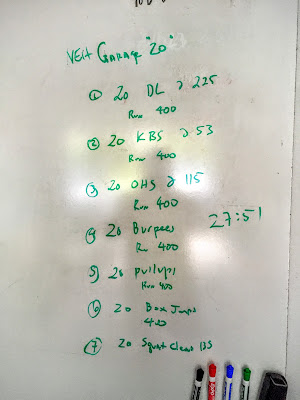 VEIT GARAGE "20"
① 20 DL @ 225
Run 400
② 20 KBS @ 53
Run 400
③ 20 OHS @ 115
Run 400
④ 20 Burpees
Run 400
27:51
⑤ 20 pullups
Run 400
⑥ 20 Box Jumps
400
⑦ 20 Squat Clean 135